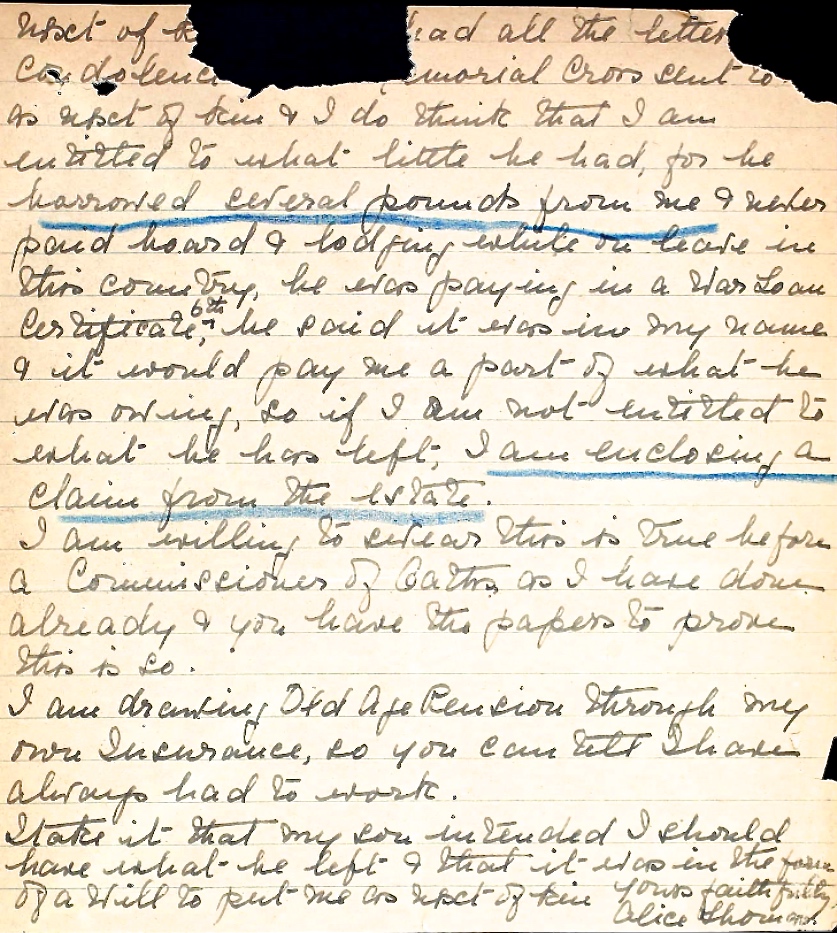 next of k had all the letter
Condolenc emorial Cross sent to
as next of kin & I do think that I am
entitled to what little he had, for he
borrowed several pounds from me & never
paid board & lodging while on leave in
this country, he was paying in a War Loan
Certificate, 6th he said it was in my name
& it would pay me a part of what he
was owing, so if I am not entitled to
what he has left, I am enclosing a
claim from the estate.
I am willing to swear this is true before
a Commissioner of Oaths as I have done
already & you have the papers to prove
this is so.
I am drawing Old Age Pension through my
own Insurance, so you can tell I have
always had to work.
I take it that my son intended I should
have what he left & that it was in the form
of a Will to put me as next of kin yours faithfully
Alice